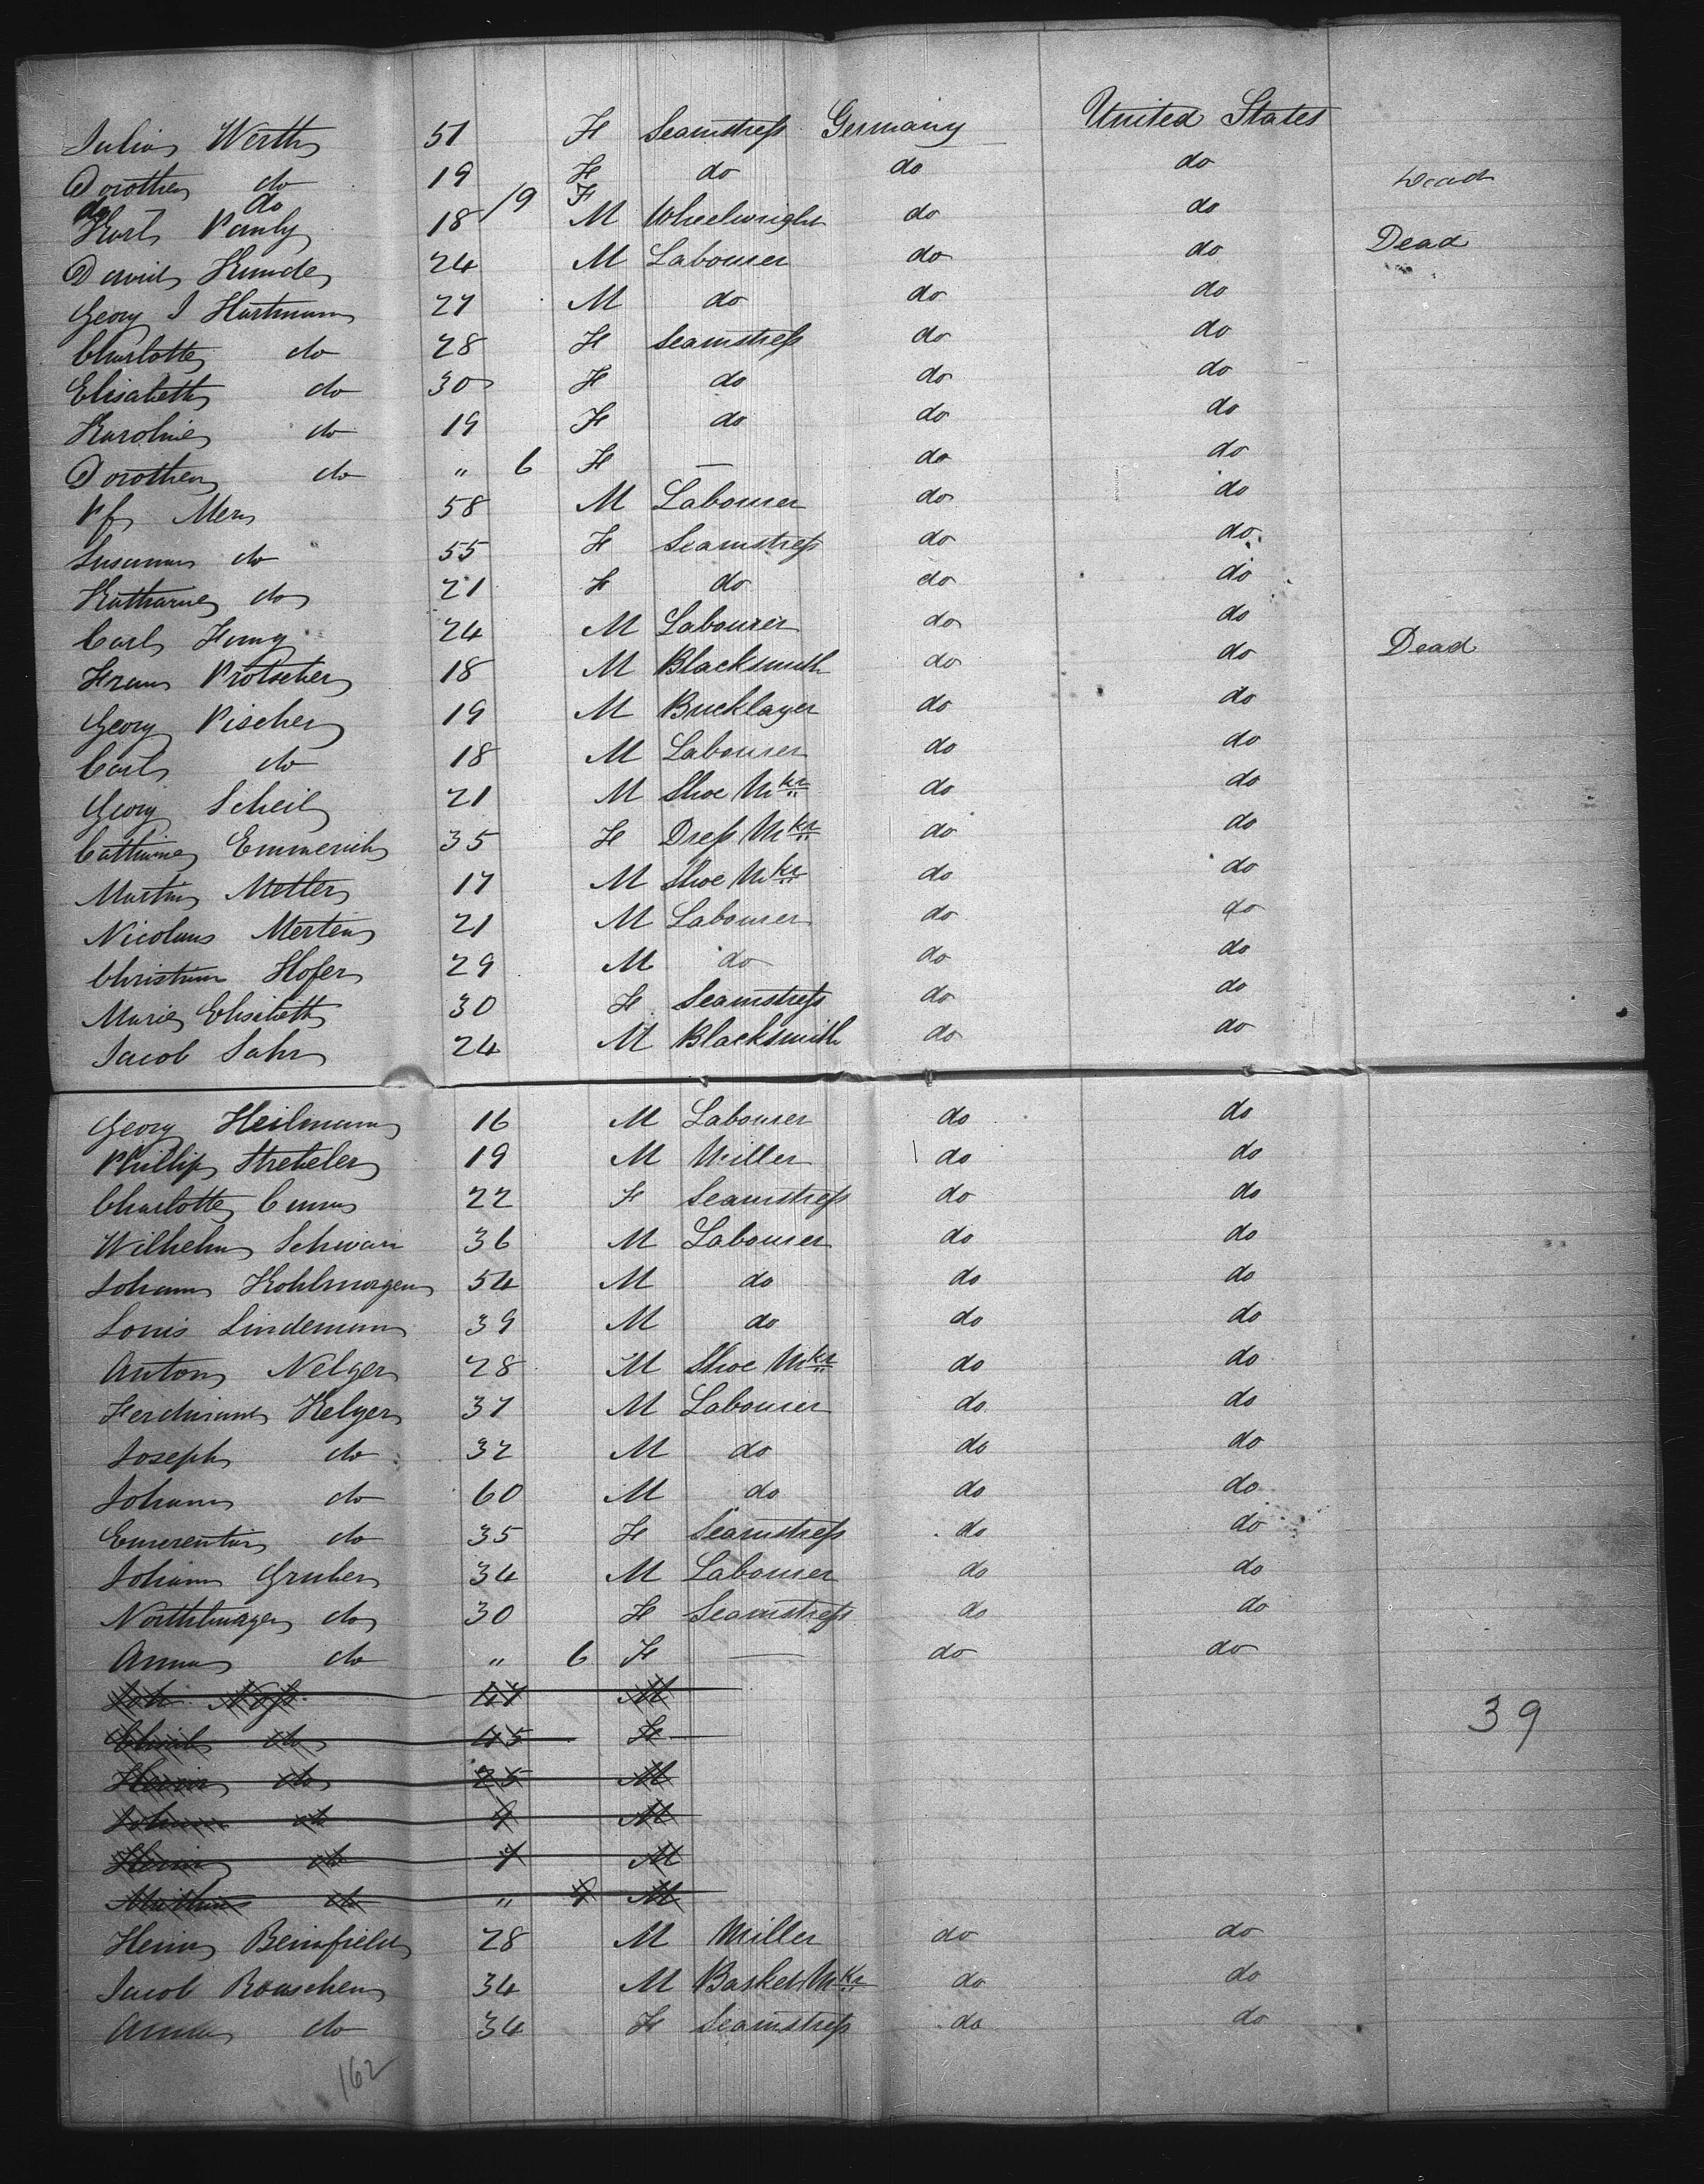 Julia Werth 51 F Seamstress Germany United States
Dorothea do 19 F do do do
do do 19 F Dead
Karl Pauly 18 M Wheelwright do do
David Kunde 24 M Labourer do do Dead
Georg J Hartmann 27 M do do do
Charlotte do 28 F Seamstress do do
Elisabeth do 30 F do do do
Karoline do 19 F do do do
Dorothea do " 6 F — do do
Pf Mer 58 M Labourer do do
Susanna do 55 F Seamstress do do
Katharine do 21 F do do do
Carl 24 M Labourer do do
Franz Protscher 18 M Blacksmith do do Dead
Georg Pischer 19 M Bricklayer do do
Carl do 18 M Labourer do do
Georg Scheib 21 M Shoe Mkr do do
Catharine Emmerich 35 F Dress Mkr do do
Martin Metler 17 M Shoe Mkr do do
Nicolaus Mertens 21 M Labourer do do
Christian Hofer 29 M do do do
Marie Elisabeth 30 F Seamstress do do
Jacob Sahr 24 M Blacksmith do do
Georg Heilmann 16 M Labourer do do
Phillip Strebeler 19 M Miller do do
Charlotte 22 F Seamstress do do
Wilhelm Schwarz 36 M Labourer do do
Johann Kohlmorgen 54 M do do do
Louis Lindemann 39 M do do do
Anton Nelger 28 M Shoe Mkr do do
Ferdinand Helger 37 M Labourer do do
Joseph do 32 M do do do
Johann do 60 M do do do
Emerentia do 35 F Seamstress do do
Johann Gruber 34 M Labourer do do
Northburga do 30 F Seamstress do do
Anna do " 6 F — do do
Joh 47 M
do 45 F 39
do 25 M
Johann do 9 M
do 7 M
Mathias do " 9 M
Heinr Beinfield 28 M Miller do do
Jacob Rouschen 34 M Basket Mkr do do
Anna do 34 F Seamstress do do
162